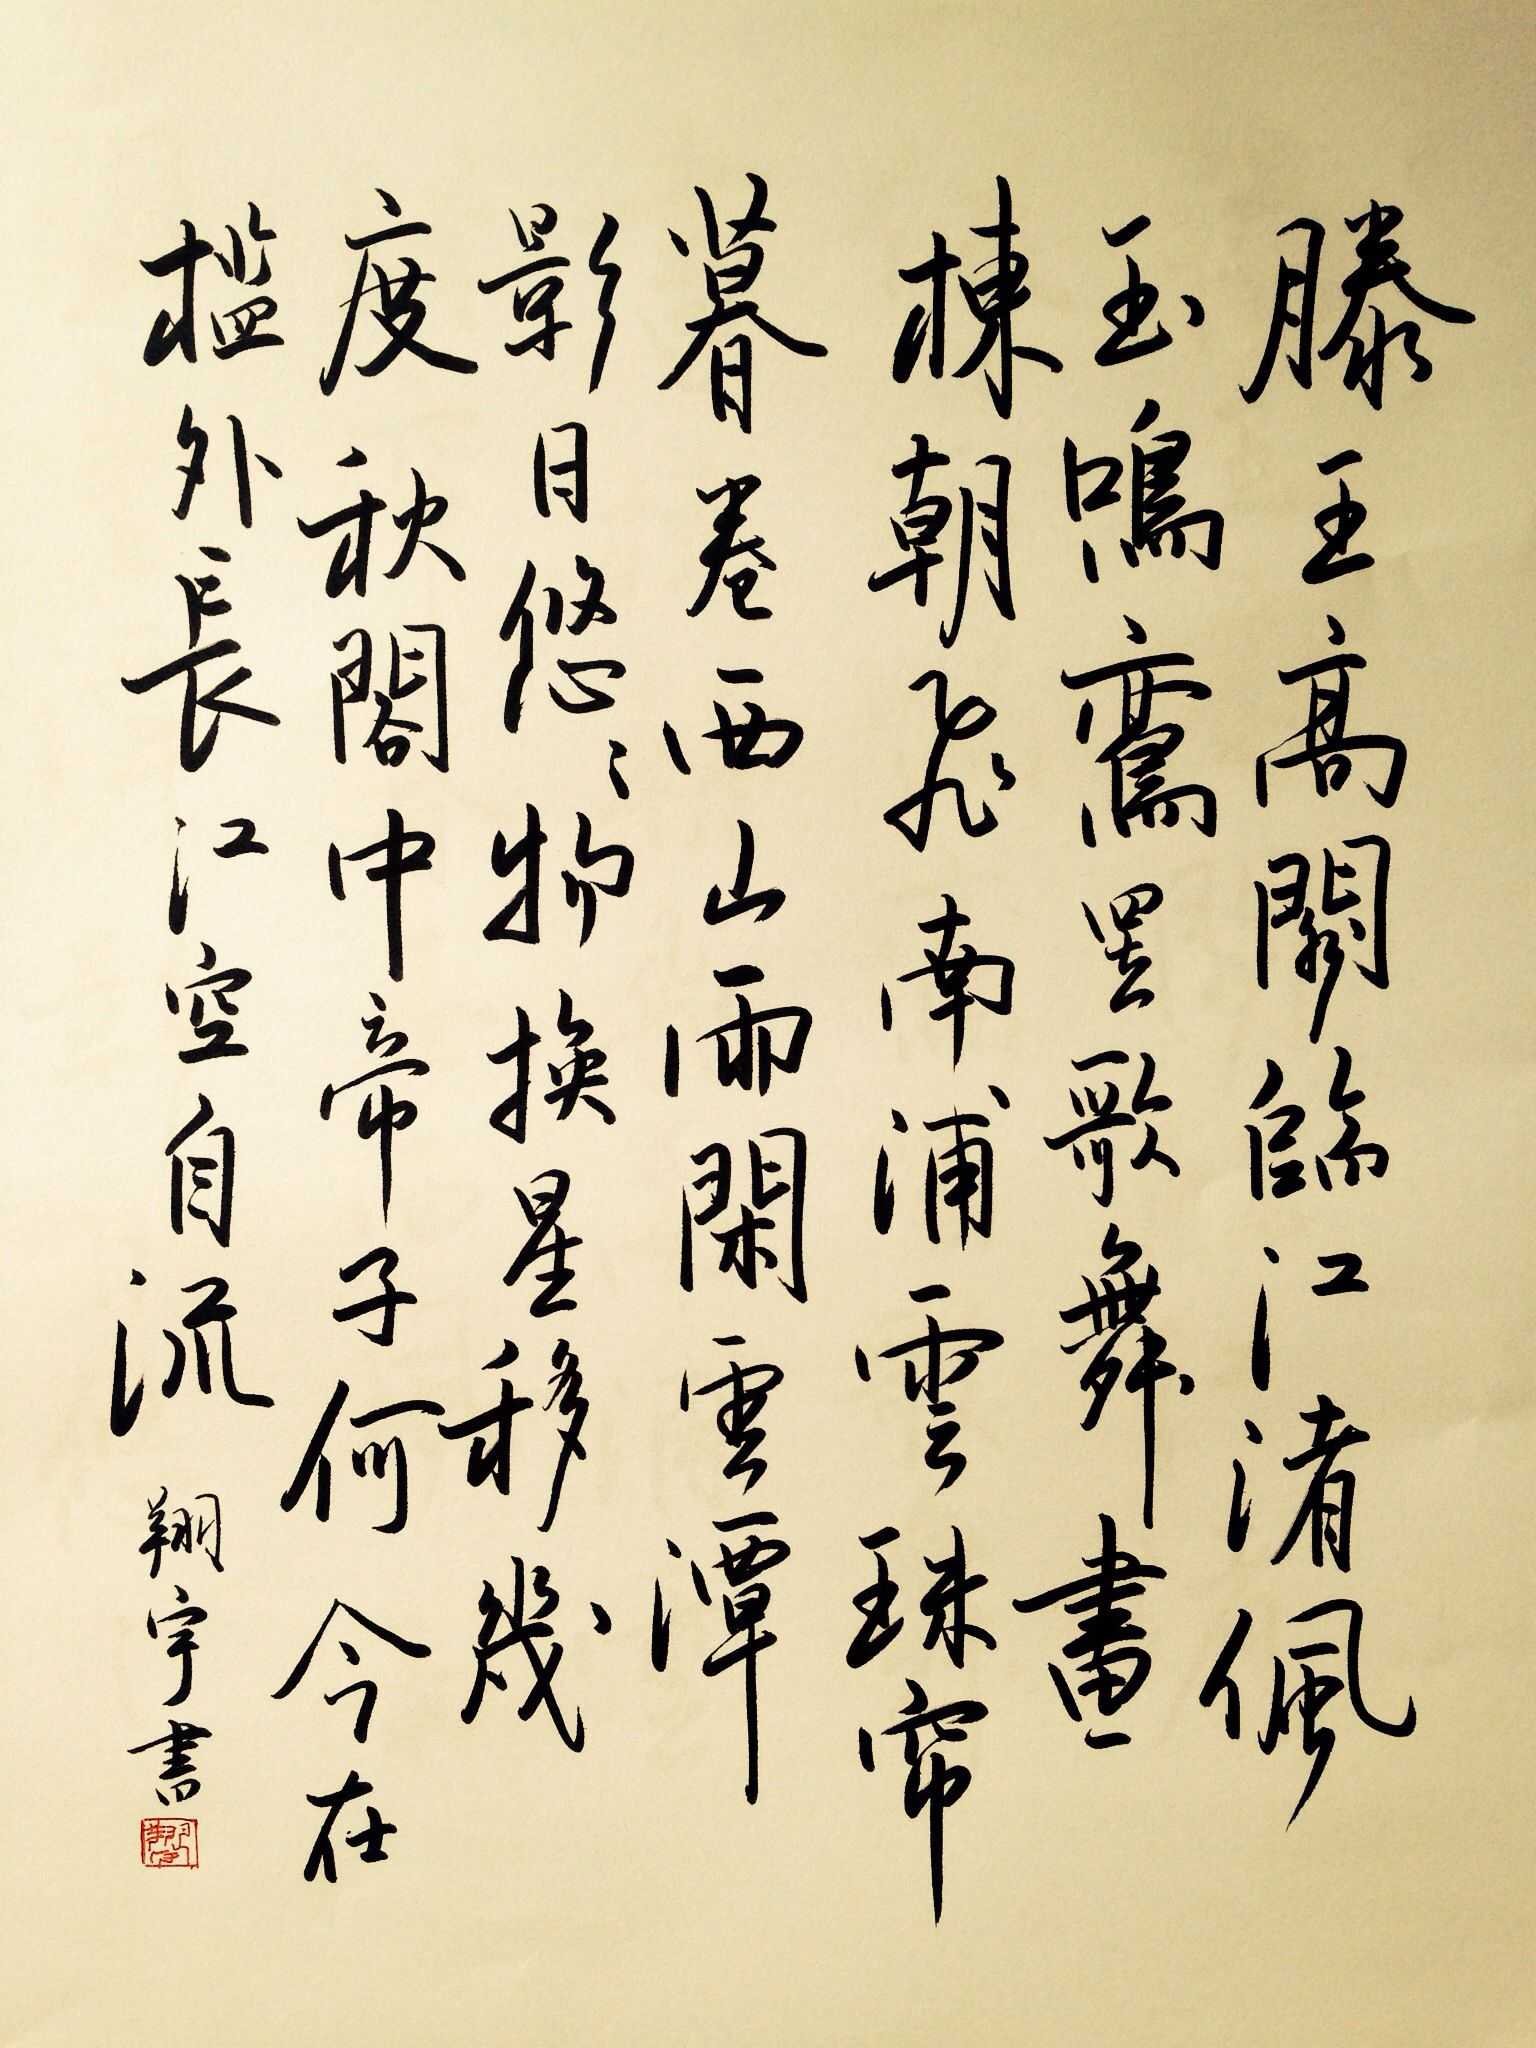 滕王高閣臨江渚佩
玉鳴鸞罷歌舞畫
棟朝飛南浦雲珠帘
暮卷西山雨閑雲潭
影日悠〻物換星移幾
度秋閣中帝子何今在
槛外長江空自流
翔宇書
翔宇